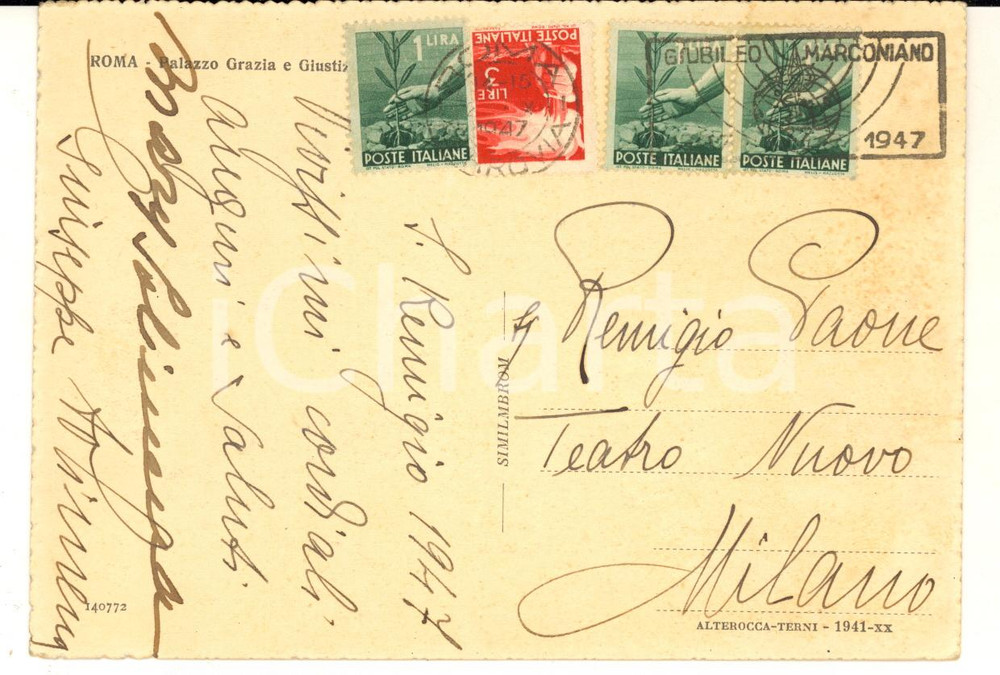 ROMA - Palazzo Grazia e Giustiz
1 LIRA
POSTE ITALIANE
POSTE ITALIANE
LIRE 3
POSTE ITALIANE
POSTE ITALIANE
GIUBILEO MARCONIANO
1947
1947
S. Remigio 1947
Vivissimi cordiali
auguri e saluti
Giuseppe
Remigio Paone
Teatro Nuovo
Milano
SIMILMBROM
140772
ALTEROCCA-TERNI - 1941-XX
iCharta